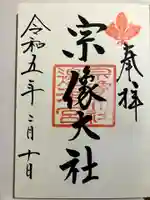 奉拝
宗像大社
令和五年二月十日